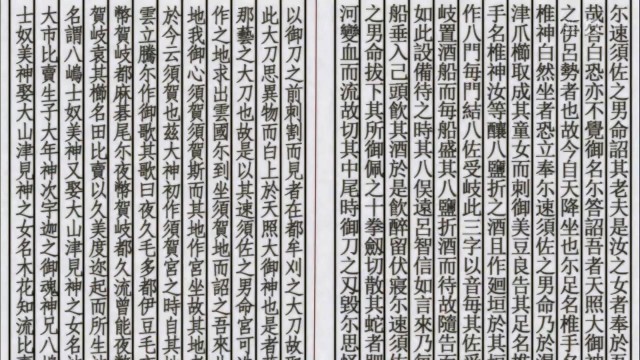 尓速須佐之男命詔其老夫是汝之女者奉於
哉答白恐亦不覺御名尓答詔吾者天照大御
之伊呂勢者也故今自天降坐也尓足名椎手
椎神白然坐者恐立奉尓速須佐之男命乃於
津爪櫛取成其童女而刺御美豆良告其足名椎
手名椎神汝等釀八鹽折之酒且作廻垣於其
作八門毎門結八佐受岐此三字以音毎其佐
岐置酒船而毎船盛其八鹽折酒而待故隨告而
如此設備待之時其八俣遠呂智信如言來乃毎
船垂入己頭飲其酒於是飲醉留伏寢尓速須佐
之男命拔下其所御佩之十拳劔切散其蛇者
河變血而流故切其中尾時御刀之刄毀尓思怪
以御刀之前刺割而見者在都牟刈之大刀故
此大刀思異物而白上於天照大御神也是者
那藝之大刀也故是以其速須佐之男命宮可
作之地求出雲國尓到坐須賀地而詔之吾來
地我御心須賀須賀斯而其地作宮坐故其地
於今云須賀也茲大神初作須賀宮之時自其
雲立騰尓作御歌其歌曰夜久毛多都伊豆毛
幣賀岐都麻碁尾尓夜幣賀岐都久流曾能夜
賀岐袁其櫛名田比賣以久美度迩起而所生
名謂八嶋士奴美神又娶大山津見神之女名
大市比賣生子大年神次宇迦之御魂神兄八
士奴美神娶大山津見神之女名木花知流比